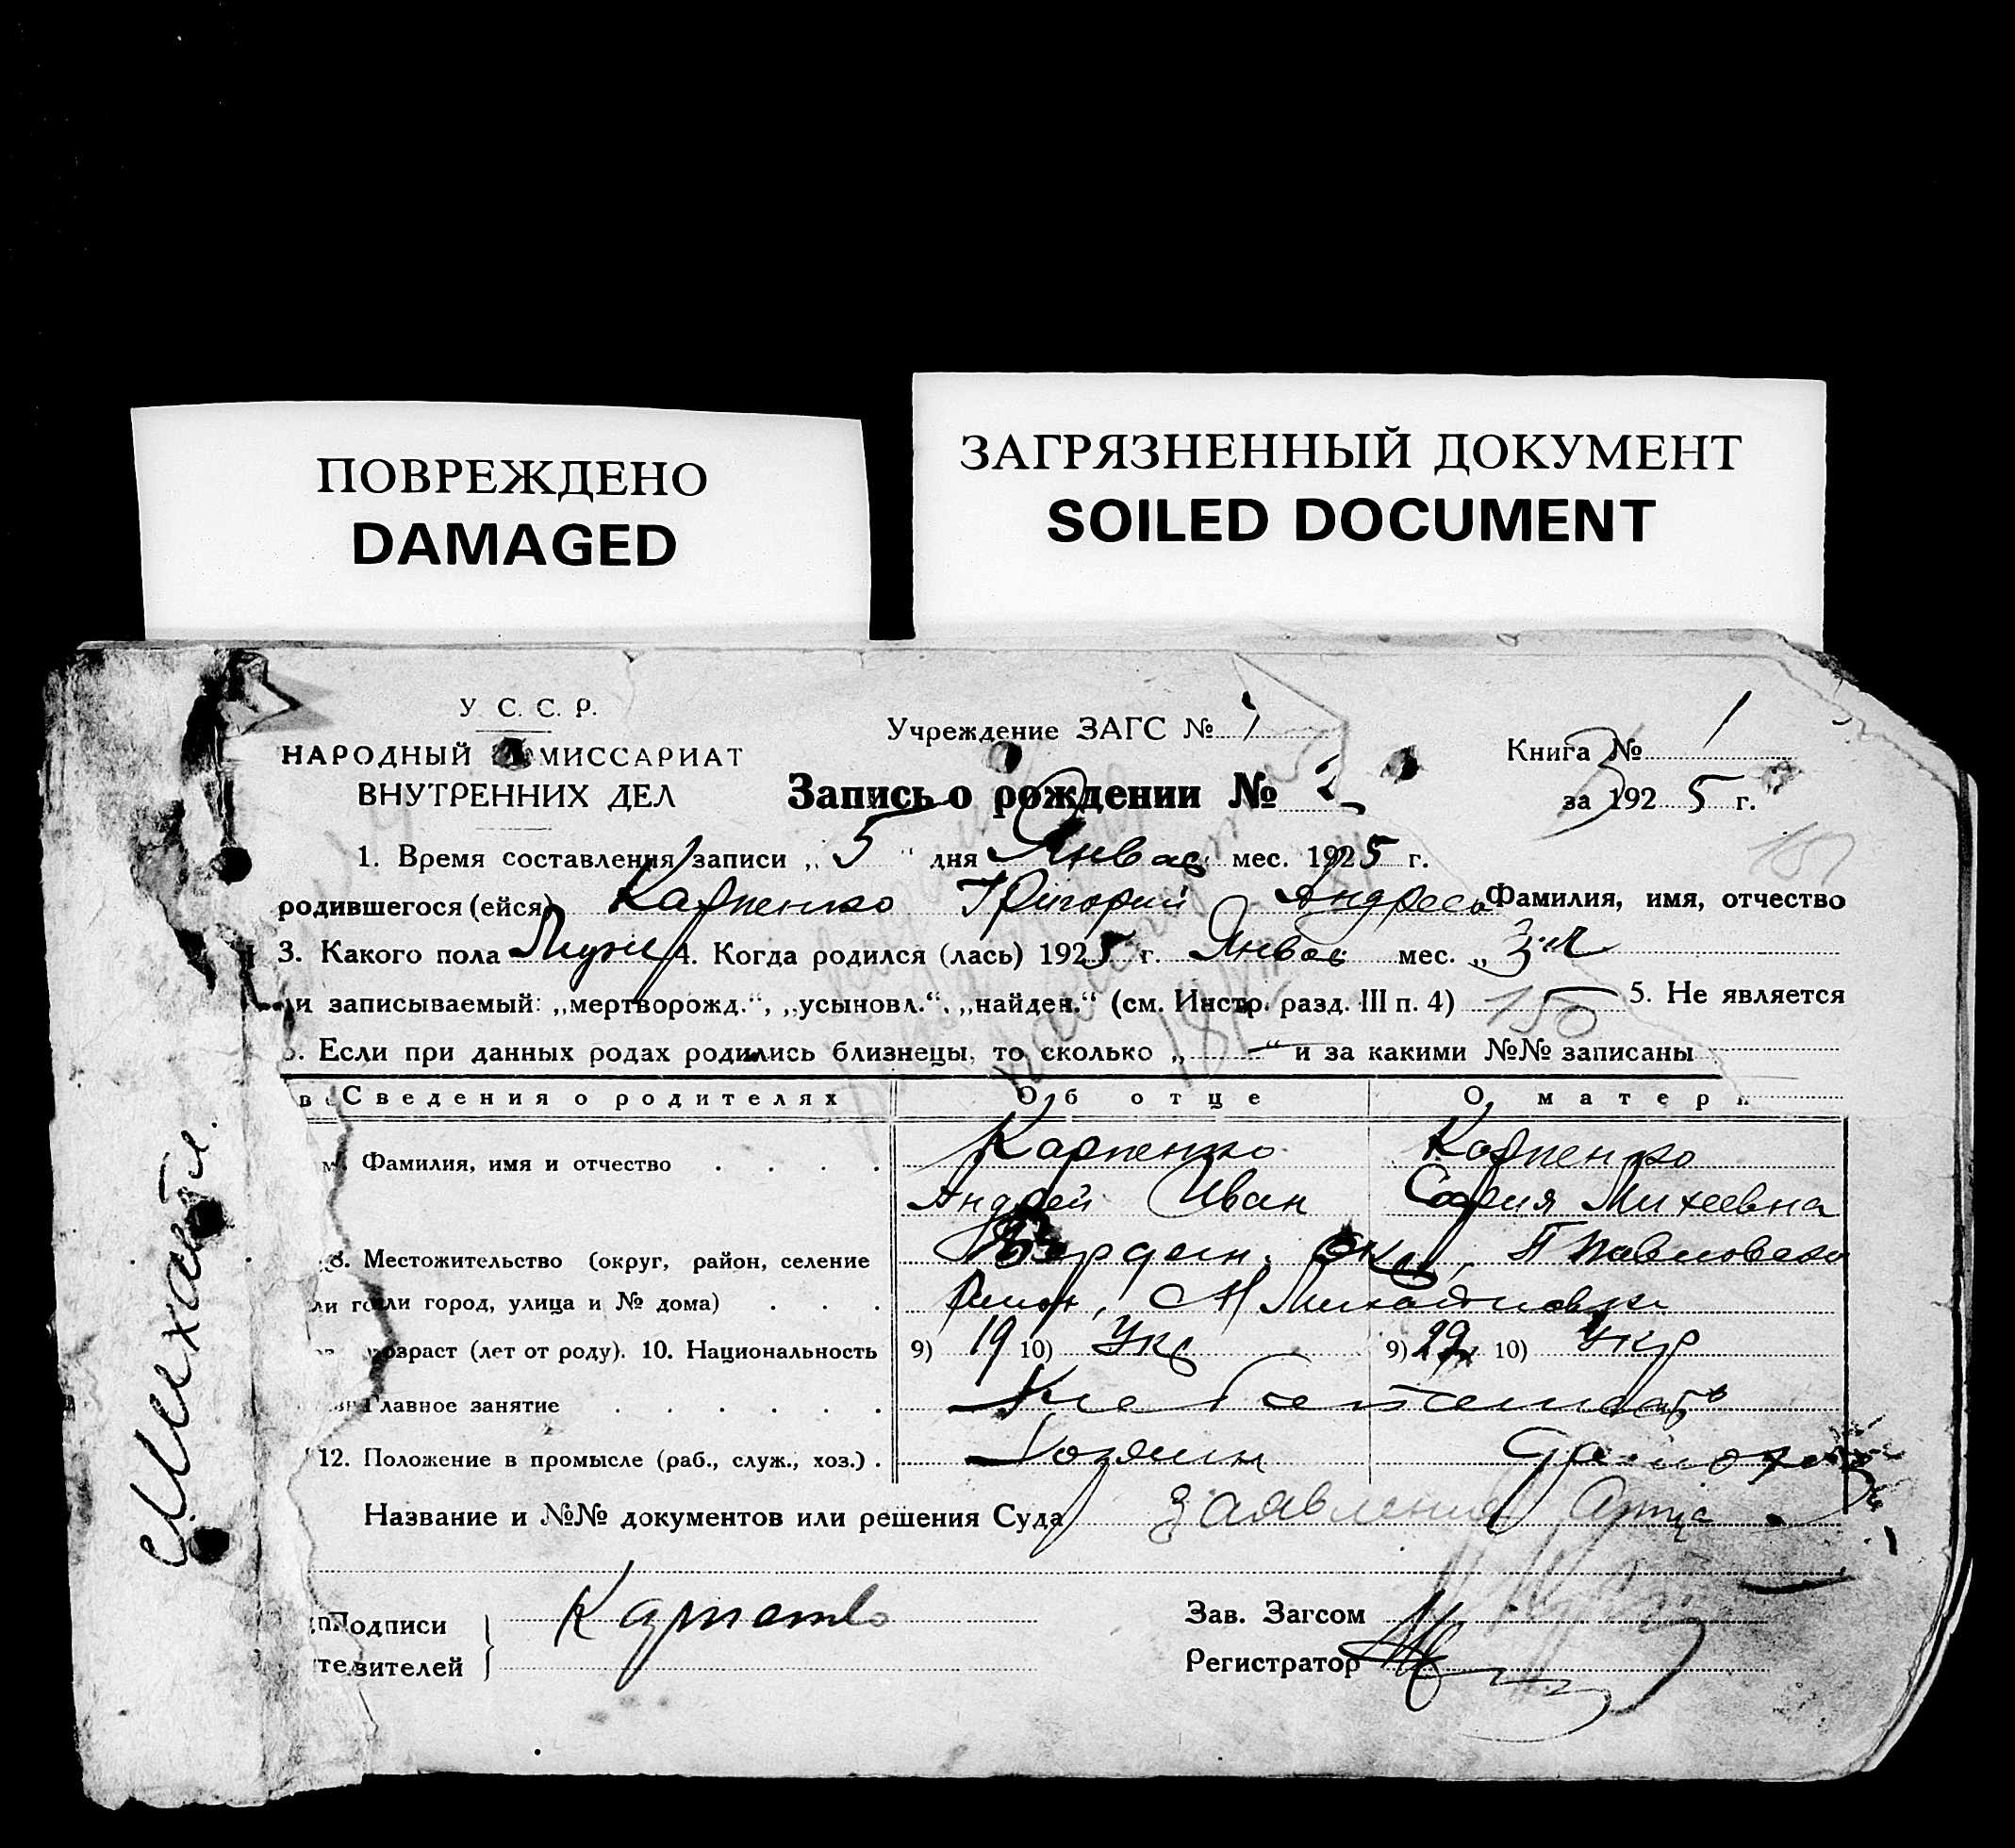 ПОВРЕЖДЕНО
DAMAGED
ЗАГРЯЗНЕННЫЙ ДОКУМЕНТ
SOILED DOCUMENT
У. С. С. Р.
НАРОДНЫЙ МИССАРИАТ
ВНУТРЕННИХ ДЕЛ
Учреждение ЗАГС № 1
Книга № 1
Запись о рождении № 2
за 1925 г.
1. Время составления записи „5" дня Янва мес. 1925 г.
родившегося (ейся) Карпенко Григорий Андрее Фамилия, имя, отчество
3. Какого пола Муж 4. Когда родился (лась) 1925 г. Янва мес. „3
и записываемый: „мертворожд.", „усыновл.", „найден." (см. Инстр. разд. III п. 4) 150 5. Не является
6. Если при данных родах родились близнецы, то сколько „—" и за какими №№ записаны
Сведения о родителях Об отце О матери
Фамилия, имя и отчество Карпенко Карпенко
Андрей Иван София Михеевна
8. Местожительство (округ, район, селение Бердян. окр., П Павловски
ли город, улица и № дома) Михайловка
возраст (лет от роду). 10. Национальность 9) 19 10) Укр 9) 22 10) Укр
Главное занятие
12. Положение в промысле (раб., служ., хоз.) Хозяин
Название и №№ документов или решения Суда Заявление отца
Подписи Карпенко Зав. Загсом
вителей Регистратор
Михайл.